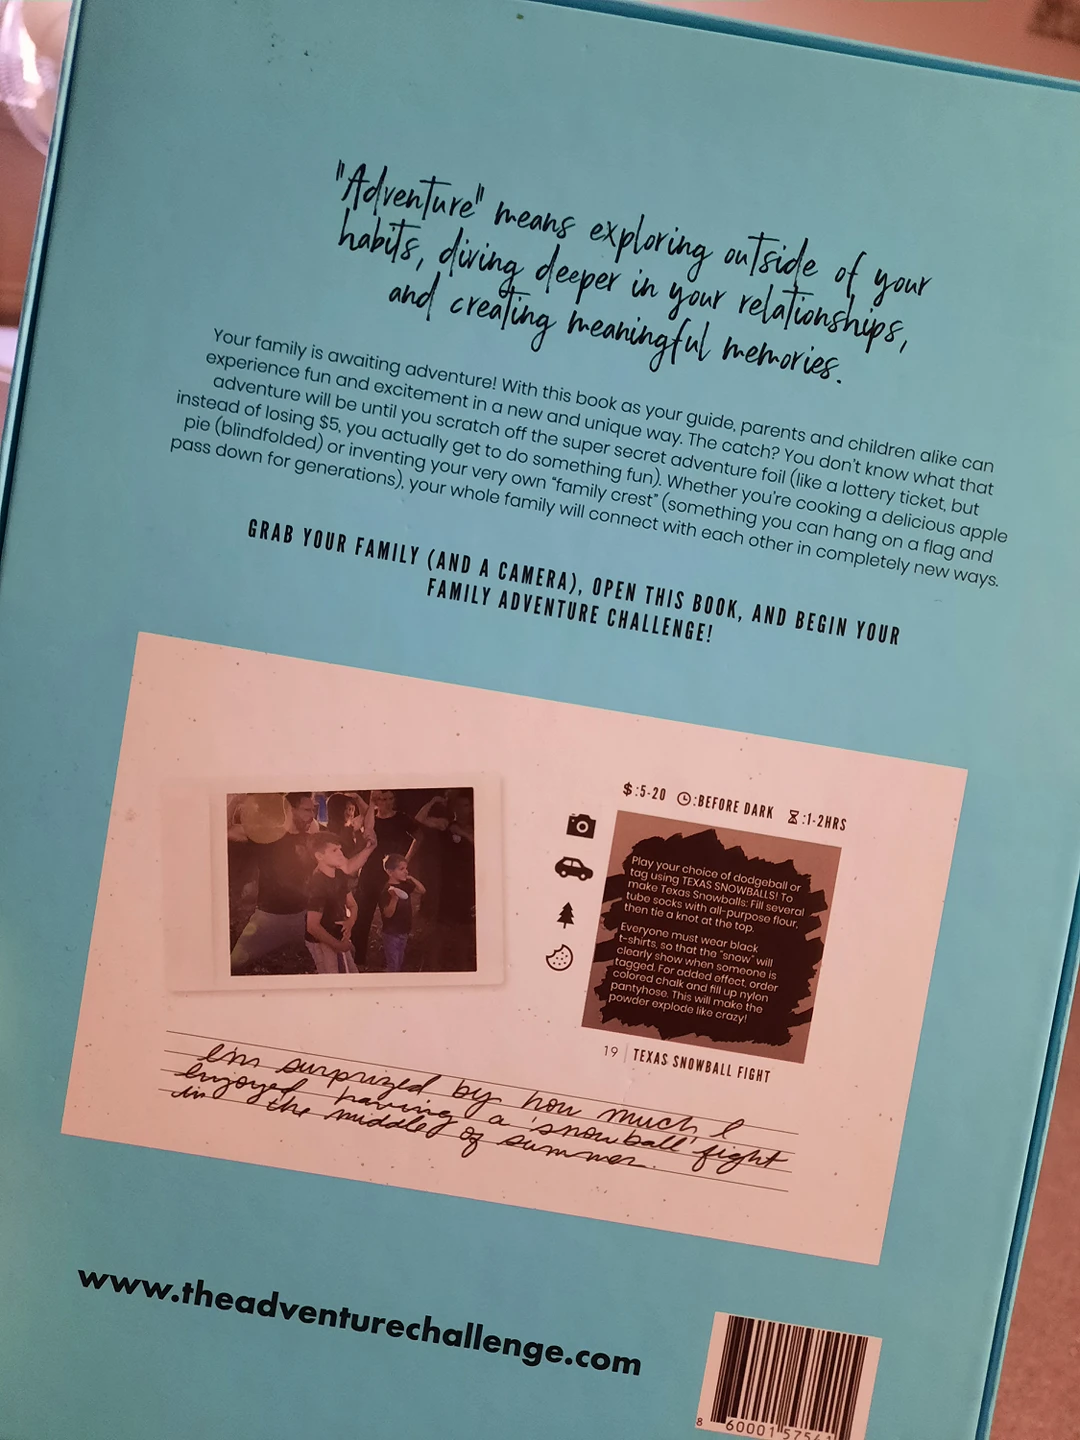 "Adventure" means exploring outside of your
habits, diving deeper in your relationships,
and creating meaningful memories.
Your family is awaiting adventure! With this book as your guide, parents and children alike can
experience fun and excitement in a new and unique way. The catch? You don't know what that
adventure will be until you scratch off the super secret adventure foil (like a lottery ticket, but
instead of losing $5, you actually get to do something fun). Whether you're cooking a delicious apple
pie (blindfolded) or inventing your very own "family crest" (something you can hang on a flag and
pass down for generations), your whole family will connect with each other in completely new ways.
GRAB YOUR FAMILY (AND A CAMERA), OPEN THIS BOOK, AND BEGIN YOUR
FAMILY ADVENTURE CHALLENGE!
$:5-20 :BEFORE DARK :1-2HRS
Play your choice of dodgeball or
tag using TEXAS SNOWBALLS! To
make Texas Snowballs: Fill several
tube socks with all-purpose flour,
then tie a knot at the top.
Everyone must wear black
t-shirts, so that the "snow" will
clearly show when someone is
tagged. For added effect, order
colored chalk and fill up nylon
pantyhose. This will make the
powder explode like crazy!
19 | TEXAS SNOWBALL FIGHT
im surprized by how much I
enjoyed having a 'snowball' fight
in the middle of summer.
www.theadventurechallenge.com
8 60001 57541